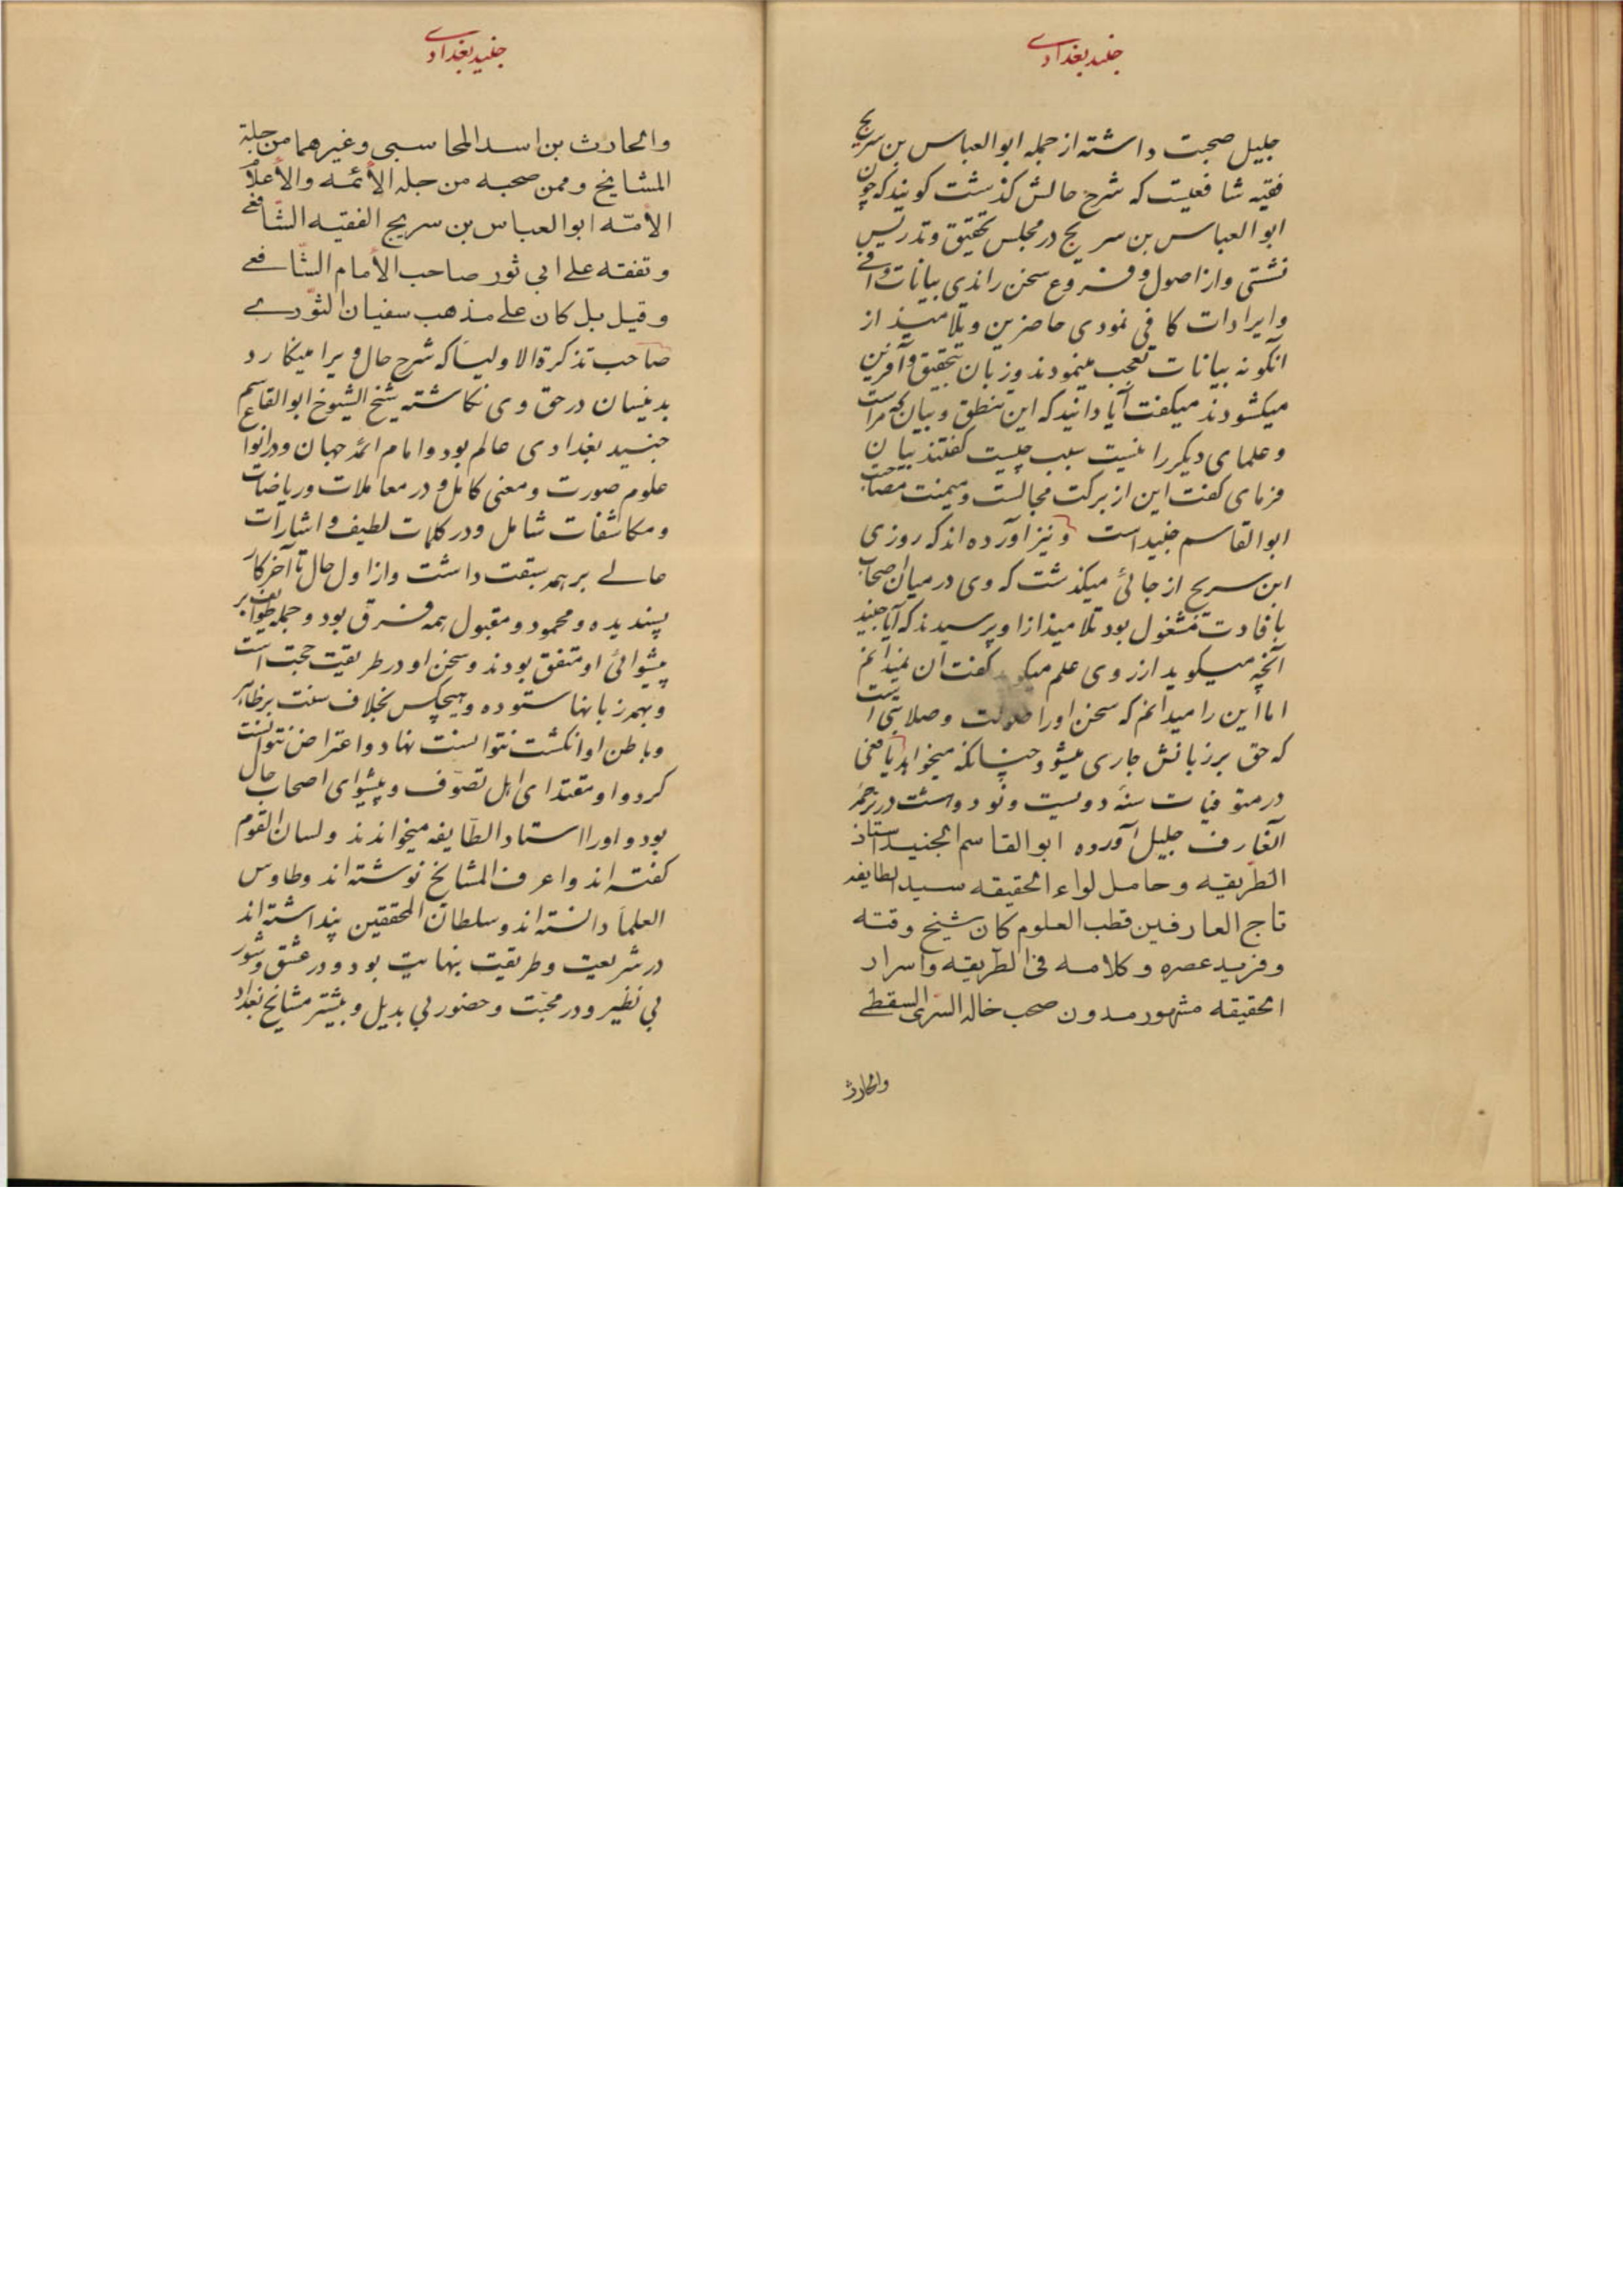 جنید بغدادی
جلیل صحبت داشته از جمله ابوالعباس بن سریج
فقیه شافعیست که شرح حالش کذشت کویند که چون
ابوالعباس بن سریج در مجلس تحقیق و تدریس
نشستی و از اصول و فروع سخن راندی بیانات وافی
و ایرادات کافی نمودی حاضرین و تلامیذ از
آنکونه بیانات تعجب مینمودند و زبان بتحقیق و آفرین
میکشودند میکفت آیا دانید که این منطق و بیان که مراست
و علمای دیکر را نیست سبب چیست کفتند بیان
فرمای کفت این از برکت مجالست و میمنت مصاحبت
ابوالقاسم جنید است و نیز آورده اند که روزی
ابن سریج از جائی میکذشت که وی در میان اصحاب
بافادت مشغول بود تلامیذ از او پرسیدند که آیا جنید
آنچه میکوید از روی علم میکوید کفت آن نمیدانم
اما این را میدانم که سخن او را صولت و صلابتی است
که حق بر زبانش جاری میشود چنانکه میخواهد یافعی
در متوفیات سنه دویست و نود و هشت در ترجمه
آنعارف جلیل آورده ابوالقاسم الجنید استاذ
الطّریقه و حامل لواء الحقیقه سید الطایفه
تاج العارفین قطب العلوم کان شیخ وقته
و فرید عصره و کلامه فی الطّریقه و اسرار
الحقیقه مشهور مدون صحب خاله السّری السقطی
والحارث
جنید بغدادی
والحارث بن اسد المحاسبی و غیرهما من جلة
المشایخ و ممن صحبه من جله الأئمه والأعلام
الأمّه ابوالعباس بن سریج الفقیه الشّافعی
و تفقه علی ابی ثور صاحب الأمام الشّافعی
و قیل بل کان علی مذهب سفیان الثّوری
صاحب تذکرة الاولیا که شرح حال ویرا مینکارد
بدینسان در حق وی نکاشته شیخ الشیوخ ابوالقاسم
جنید بغدادی عالم بود و امام ائمه جهان و در انواع
علوم صورت و معنی کامل و در معاملات و ریاضات
و مکاشفات شامل و در کلمات لطیف و اشارات
عالی بر همه سبقت داشت و از اول حال تا آخر کار
پسندیده و محمود و مقبول همه فرق بود و جمله طوایف بر
پیشوائی او متفق بودند و سخن او در طریقت حجت است
و بهمه زبانها ستوده و هیچکس بخلاف سنت بر ظاهر
و باطن او انکشت نتوانست نهاد و اعتراض نتوانست
کرد و او مقتدای اهل تصوّف و پیشوای اصحاب حال
بود و او را استاد الطّایفه میخواندند و لسان القوم
کفته اند و اعرف المشایخ نوشته اند و طاوس
العلما دانسته اند و سلطان المحققین پنداشته اند
در شریعت و طریقت بنهایت بود و در عشق و شور
بی نظیر و در محبّت و حضور بی بدیل و بیشتر مشایخ بغداد